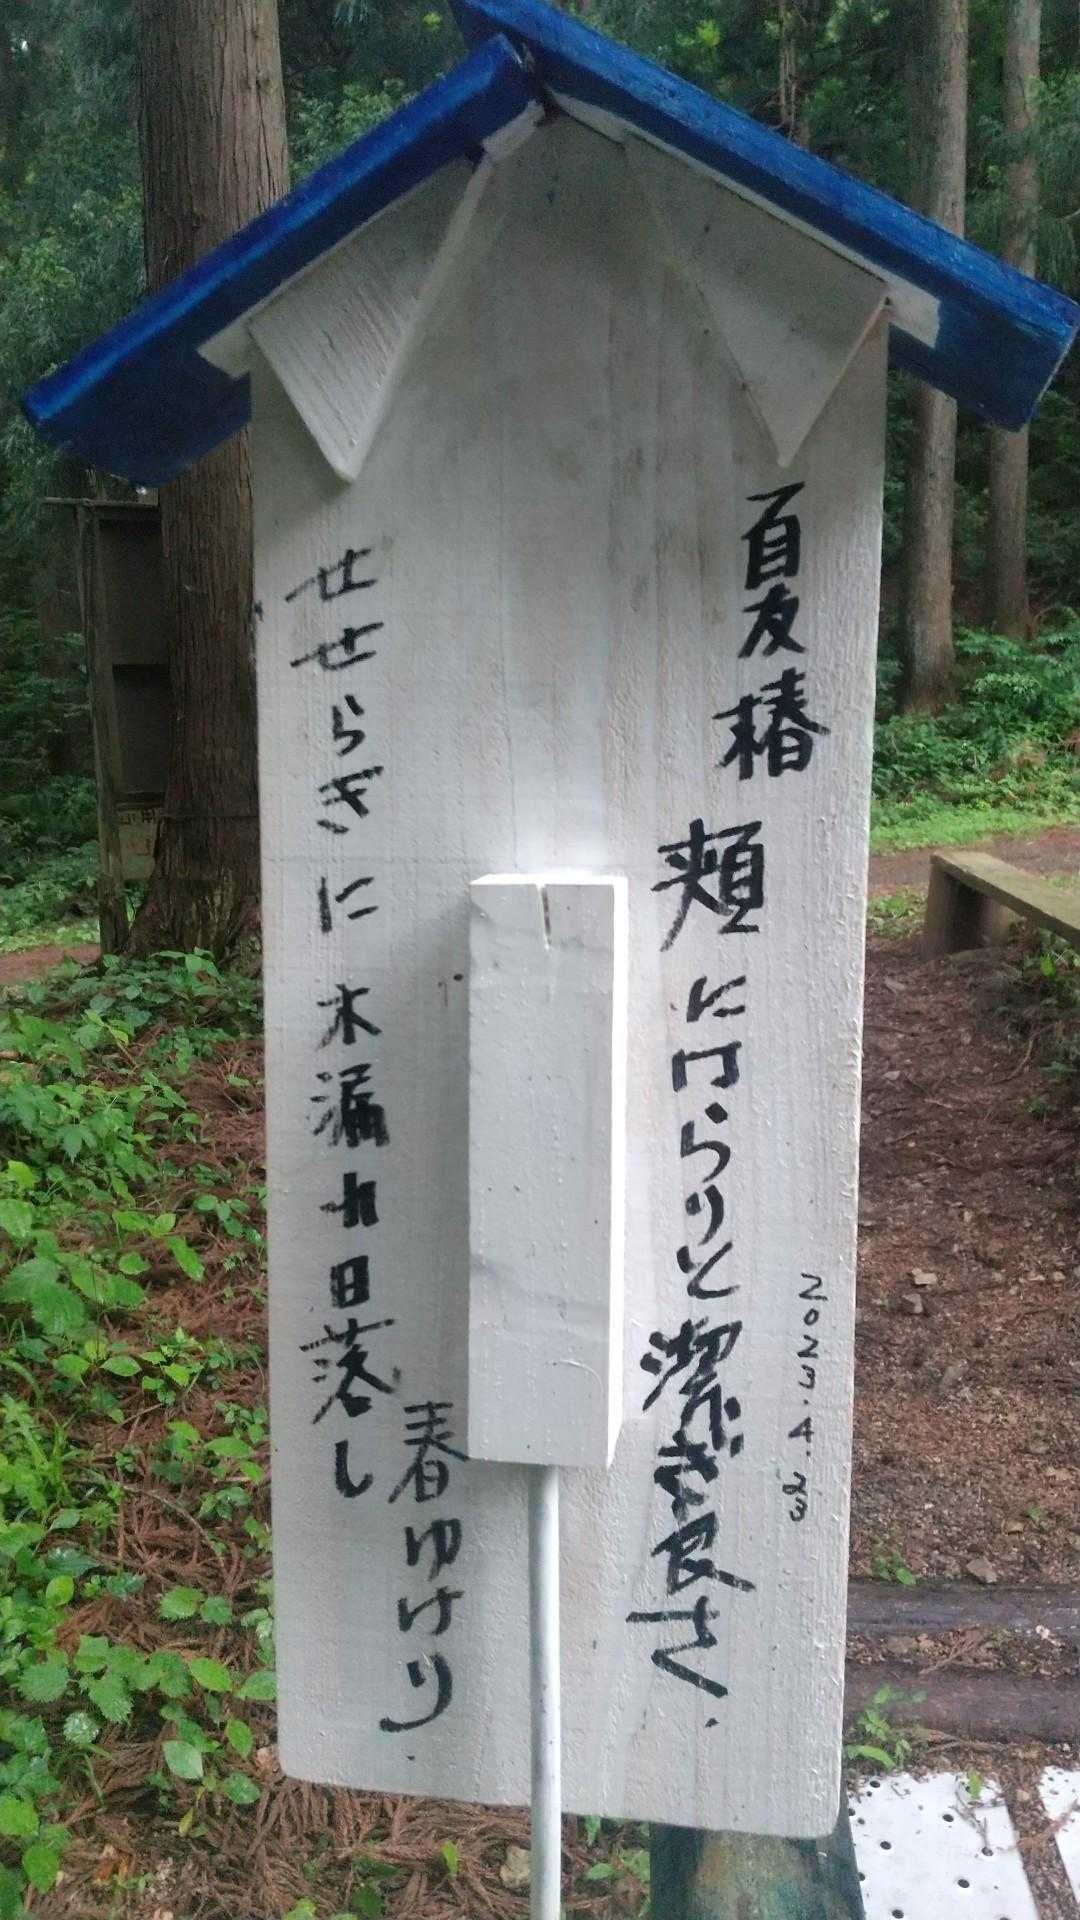 2023.4.23
夏椿 頬にはらりと 潔ぎ良さく
せせらぎに 木漏れ日落し
春ゆけり